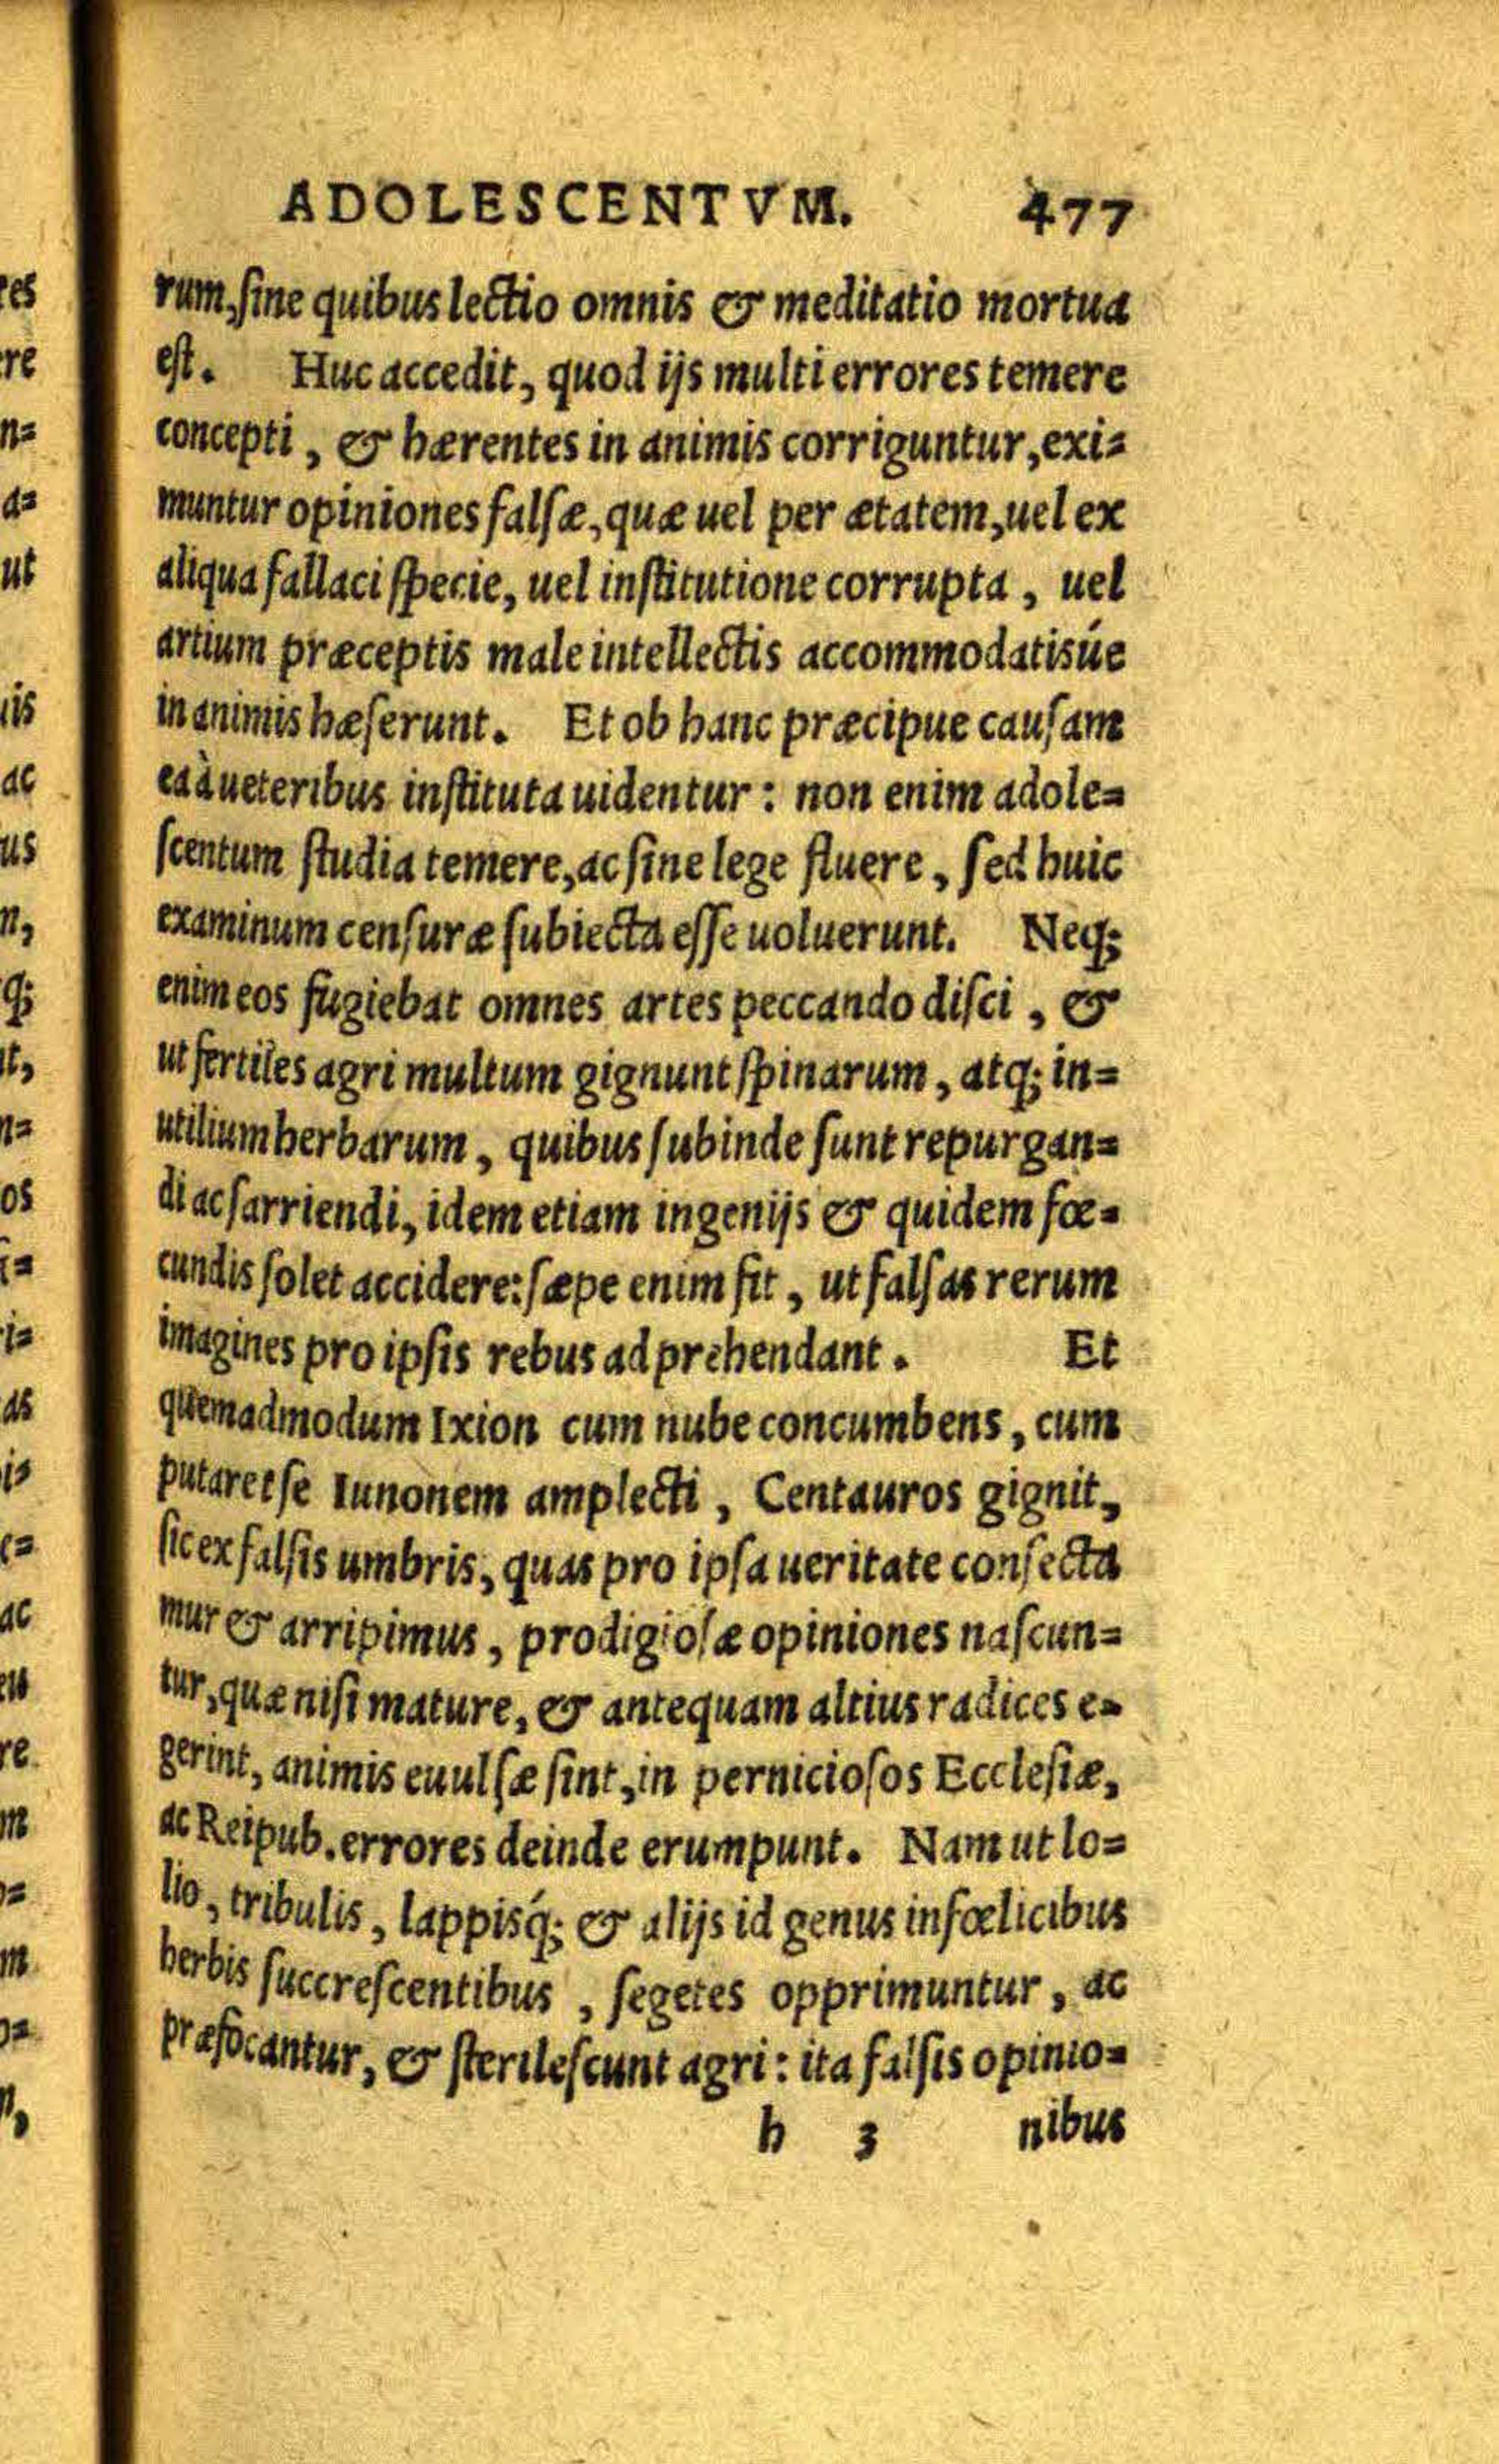 ADOLESCENTVM. 477
rum, ſine quibus lectio omnis & meditatio mortua
eſt. Huc accedit, quod ijs multi errores temere
concepti, & hærentes in animis corriguntur, exi=
muntur opiniones falſæ, quæ uel per ætatem, uel ex
aliqua fallaci ſpecie, uel inſtitutione corrupta, uel
artium præceptis male intellectis accommodatisúe
in animis hæſerunt. Et ob hanc præcipue cauſam
ea à ueteribus inſtituta uidentur: non enim adole=
ſcentum ſtudia temere, ac ſine lege fluere, ſed huic
examinum cenſuræ ſubiecta eſſe uoluerunt. Neq;
enim eos fugiebat omnes artes peccando diſci, &
ut fertiles agri multum gignunt ſpinarum, atq; in=
utilium herbarum, quibus ſubinde ſunt repurgan=
di ac ſarriendi, idem etiam ingenijs & quidem fœ=
cundis ſolet accidere: ſæpe enim fit, ut falſas rerum
imagines pro ipſis rebus adprehendant. Et
quemadmodum Ixion cum nube concumbens, cum
putaret ſe Iunonem amplecti, Centauros gignit,
ſic ex falſis umbris, quas pro ipſa ueritate conſecta
mur & arripimus, prodigioſæ opiniones naſcun=
tur, quæ niſi mature, & antequam altius radices e=
gerint, animis euulſæ ſint, in pernicioſos Eccleſiæ,
ac Reipub. errores deinde erumpunt. Nam ut lo=
lio, tribulis, lappisq́; & alijs id genus infœlicibus
herbis ſuccreſcentibus, ſegetes opprimuntur, ac
præfocantur, & ſterileſcunt agri: ita falſis opinio=
h 3 nibus